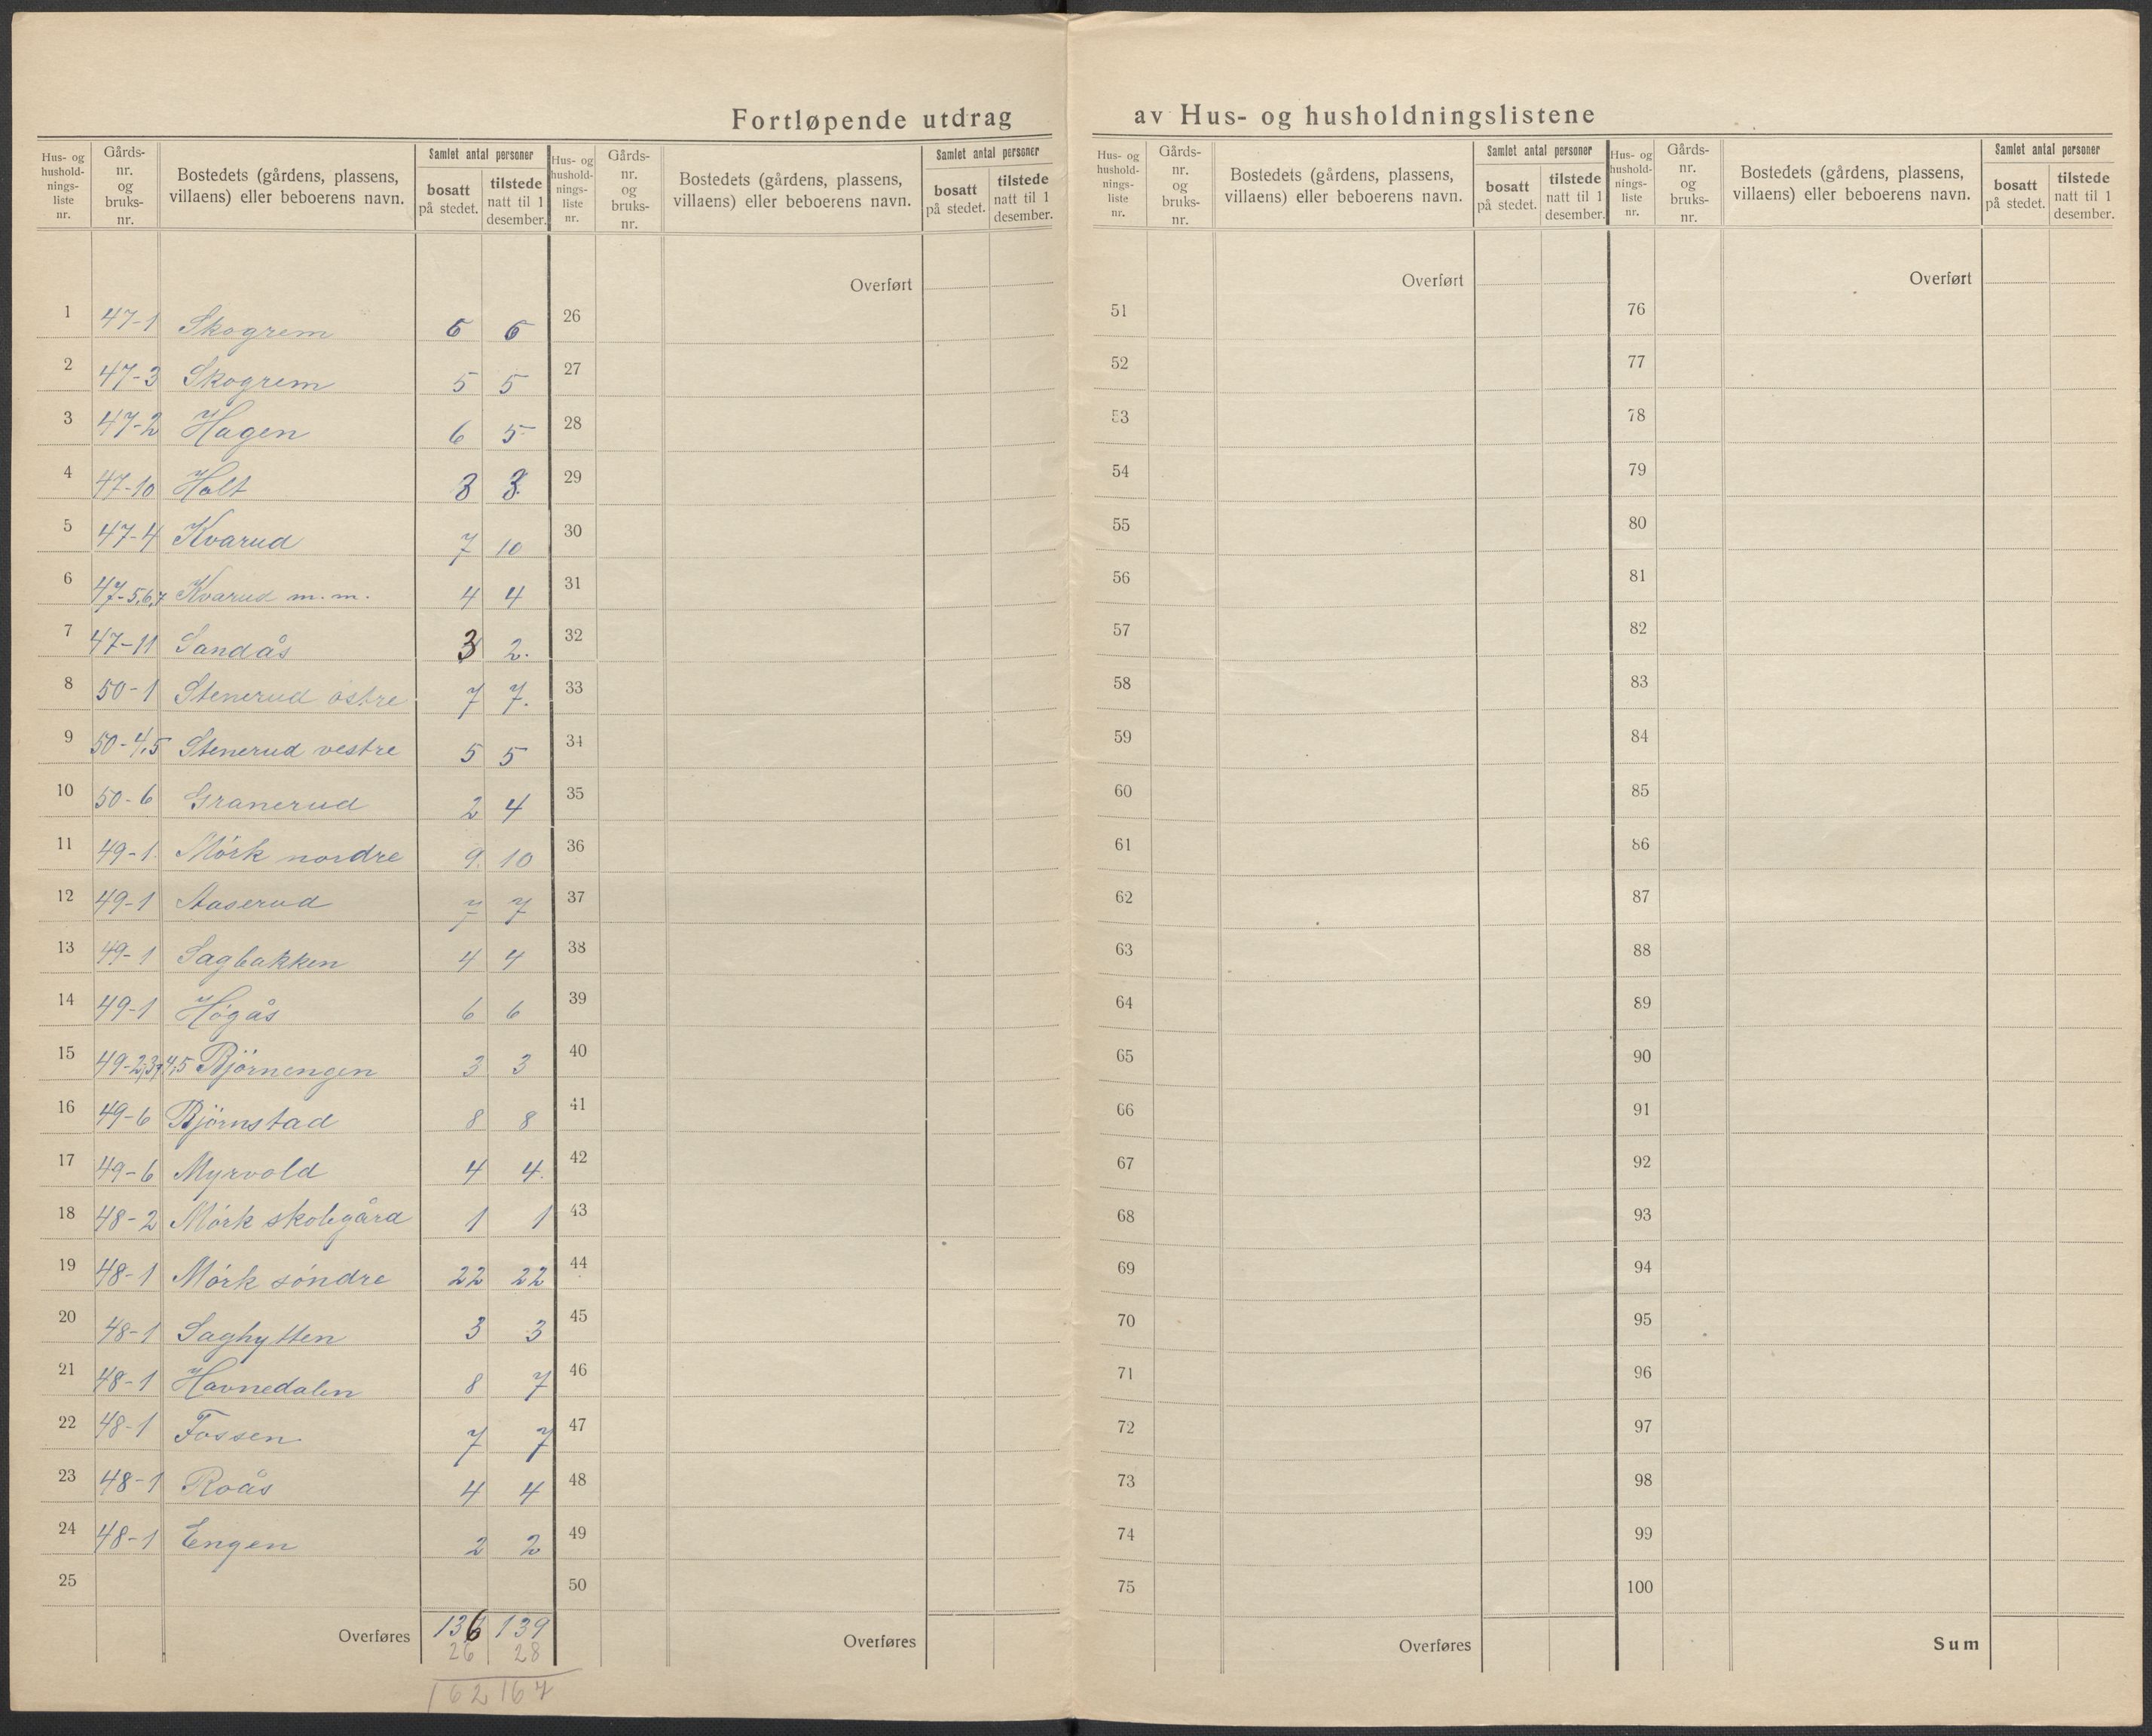 Fortløpende utdrag av Hus- og husholdningslistene
Hus- og hushold- nings- liste nr. | Gårds- nr. og bruks- nr. | Bostedets (gårdens, plassens, villaens) eller beboerens navn. | Samlet antal personer | bosatt på stedet. | tilstede natt til 1 desember.
Hus- og hushold- nings- liste nr. | Gårds- nr. og bruks- nr. | Bostedets (gårdens, plassens, villaens) eller beboerens navn. | Samlet antal personer | bosatt på stedet. | tilstede natt til 1 desember.
Hus- og hushold- nings- liste nr. | Gårds- nr. og bruks- nr. | Bostedets (gårdens, plassens, villaens) eller beboerens navn. | Samlet antal personer | bosatt på stedet. | tilstede natt til 1 desember.
Hus- og hushold- nings- liste nr. | Gårds- nr. og bruks- nr. | Bostedets (gårdens, plassens, villaens) eller beboerens navn. | Samlet antal personer | bosatt på stedet. | tilstede natt til 1 desember.
Overført Overført Overført
1 47-1 Skogrem 6 6 26 51 76
2 47-3 Skogrem 5 5 27 52 77
3 47-2 Hagen 6 5 28 53 78
4 47-10 Holt 3 3. 29 54 79
5 47-4 Kvarud 7 10 30 55 80
6 47-5,6,7 Kvarud m. m. 4 4 31 56 81
7 47-11 Sandås 3 2. 32 57 82
8 50-1 Stenerud østre 7 7. 33 58 83
9 50-4,5 Stenerud vestre 5 5 34 59 84
10 50-6 Granerud 2 4 35 60 85
11 49-1. Mörk nordre 9. 10 36 61 86
12 49-1 Aaserud 7 7 37 62 87
13 49-1 Sagbakken 4 4 38 63 88
14 49-1 Høgås 6 6 39 64 89
15 49-2,3,4,5 Björnengen 3 3 40 65 90
16 49-6 Björnstad 8 8 41 66 91
17 49-6 Myrvold 4 4. 42 67 92
18 48-2 Mörk skolegård 1 1 43 68 93
19 48-1 Mörk söndre 22 22 44 69 94
20 48-1 Saghytten 3 3 45 70 95
21 48-1 Havnedalen 8 7 46 71 96
22 48-1 Fossen 7 7 47 72 97
23 48-1 Roås 4 4 48 73 98
24 48-1 Engen 2 2 49 74 99
25 50 75 100
Overføres 136 139 Overføres Overføres Sum
26 28
162 167